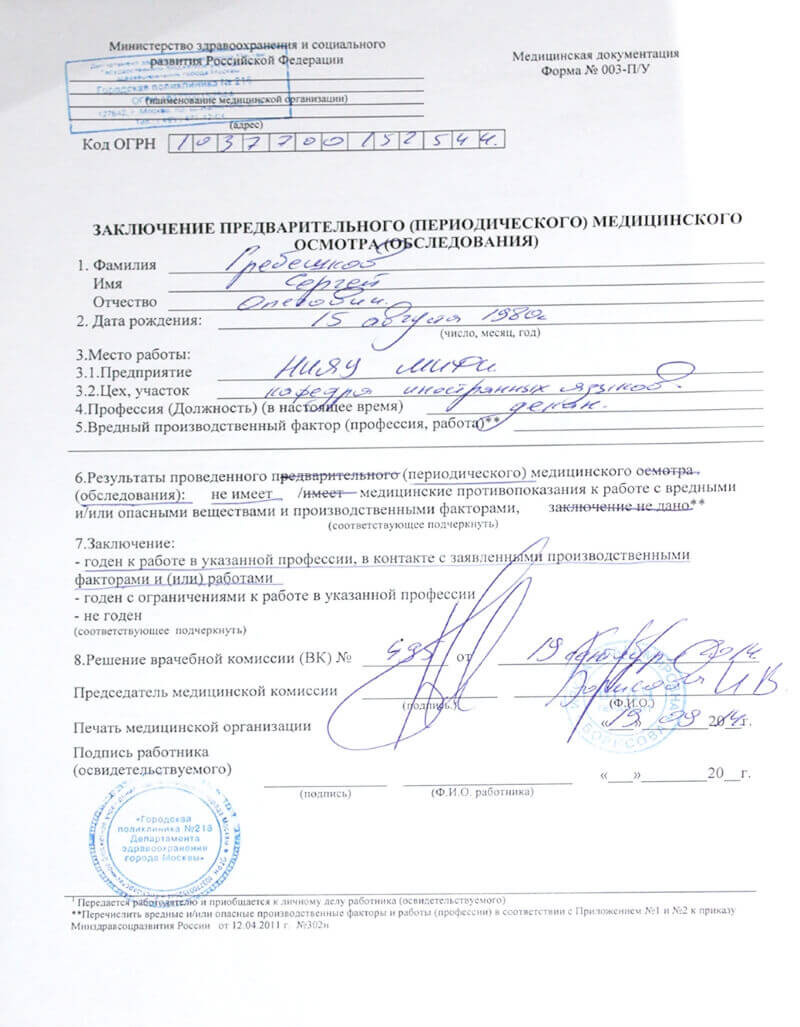 Министерство здравоохранения и социального
развития Российской Федерации
Медицинская документация
Форма № 003-П/У
Городская поликлиника № 218
(наименование медицинской организации)
(адрес)
Код ОГРН 1037700152544
ЗАКЛЮЧЕНИЕ ПРЕДВАРИТЕЛЬНОГО (ПЕРИОДИЧЕСКОГО) МЕДИЦИНСКОГО
ОСМОТРА (ОБСЛЕДОВАНИЯ)
1. Фамилия Гребешков
Имя Сергей
Отчество Олегович
2. Дата рождения: 15 августа 1980г
(число, месяц, год)
3.Место работы:
3.1.Предприятие НИЯУ МИФИ
3.2.Цех, участок кафедра иностранных языков.
4.Профессия (Должность) (в настоящее время) декан.
5.Вредный производственный фактор (профессия, работа)**
6.Результаты проведенного предварительного (периодического) медицинского осмотра
(обследования): не имеет /имеет медицинские противопоказания к работе с вредными
и/или опасными веществами и производственными факторами, заключение не дано**
(соответствующее подчеркнуть)
7.Заключение:
- годен к работе в указанной профессии, в контакте с заявленными производственными
факторами и (или) работами
- годен с ограничениями к работе в указанной профессии
- не годен
(соответствующее подчеркнуть)
8.Решение врачебной комиссии (ВК) № 495 от 19 2014.
Председатель медицинской комиссии Борисова И В
(подпись.)
(Ф.И.О.)
Печать медицинской организации «19» 09 2014г.
БОРИСОВА
Подпись работника
(освидетельствуемого) «___»________20__г.
(подпись)
(Ф.И.О. работника)
«Городская
поликлиника №218
Департамента
здравоохранения
города Москвы»
¹ Передается работодателю и приобщается к личному делу работника (освидетельствуемого)
**Перечислить вредные и/или опасные производственные факторы и работы (профессии) в соответствии с Приложением №1 и №2 к приказу
Минздравсоцразвития России от 12.04.2011 г. №302н